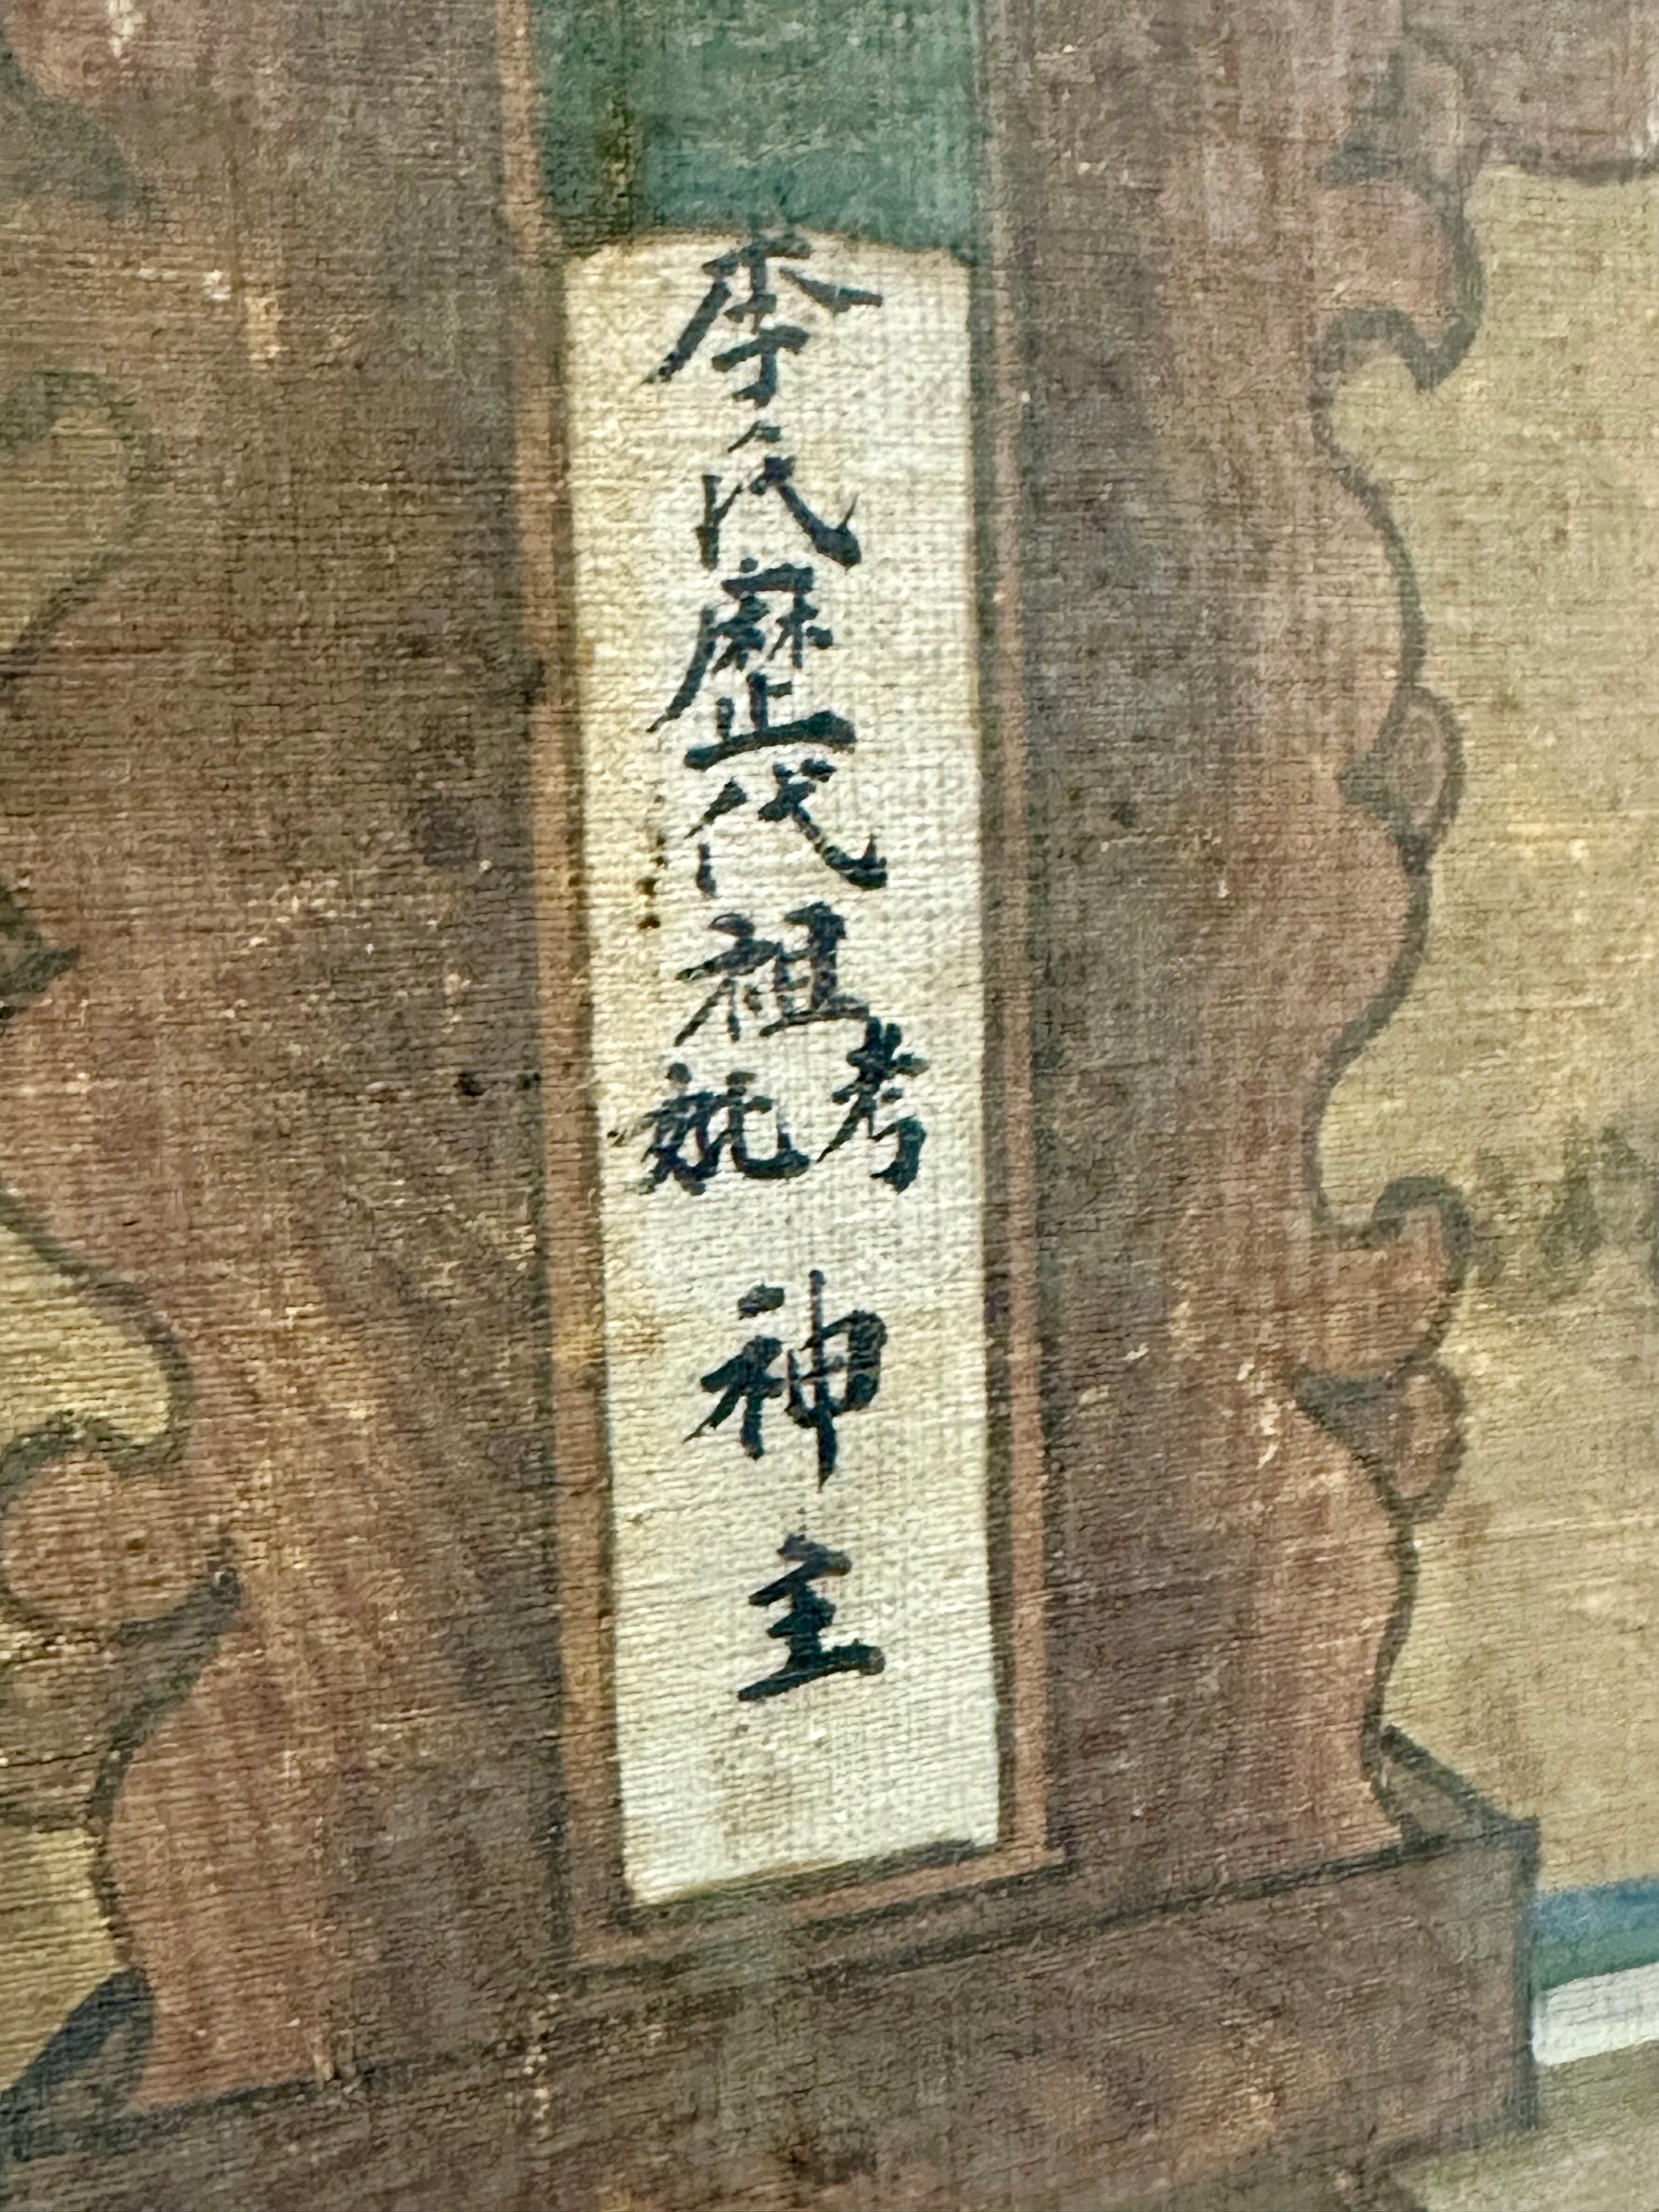 李氏歷代祖考妣神主